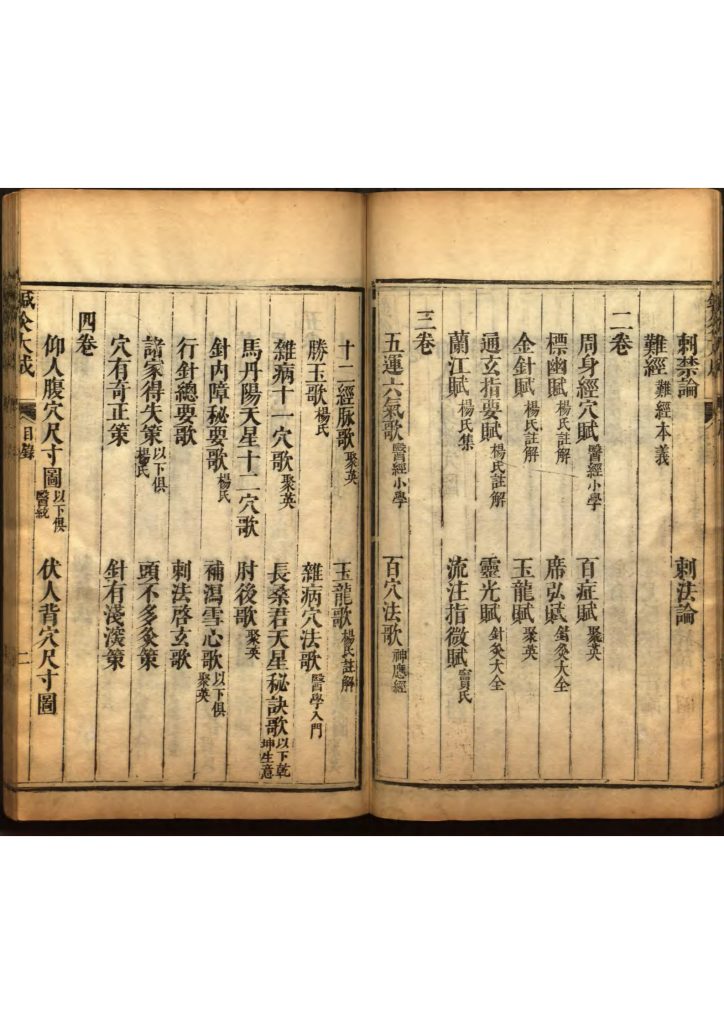 刺禁論 刺法論
難經 難經本義
二卷
周身經穴賦 醫經小學 百症賦 聚英
標幽賦 楊氏註解 席弘賦 針灸大全
金針賦 楊氏註解 玉龍賦 聚英
通玄指要賦 楊氏註解 靈光賦 針灸大全
蘭江賦 楊氏集 流注指微賦 竇氏
三卷
五運六氣歌 醫經小學 百穴法歌 神應經
十二經脉歌 聚英 玉龍歌 楊氏註解
勝玉歌 楊氏 雜病穴法歌 醫學入門
雜病十一穴歌 聚英 長桑君天星秘訣歌 以下乾坤生意
馬丹陽天星十二穴歌 肘後歌 聚英
針內障秘要歌 楊氏 補瀉雪心歌 以下俱聚英
行針總要歌 刺法啓玄歌
諸家得失策 以下俱楊氏 頭不多灸策
穴有奇正策 針有淺深策
四卷
仰人腹穴尺寸圖 以下俱醫統 伏人背穴尺寸圖
鍼灸大成 目錄 二